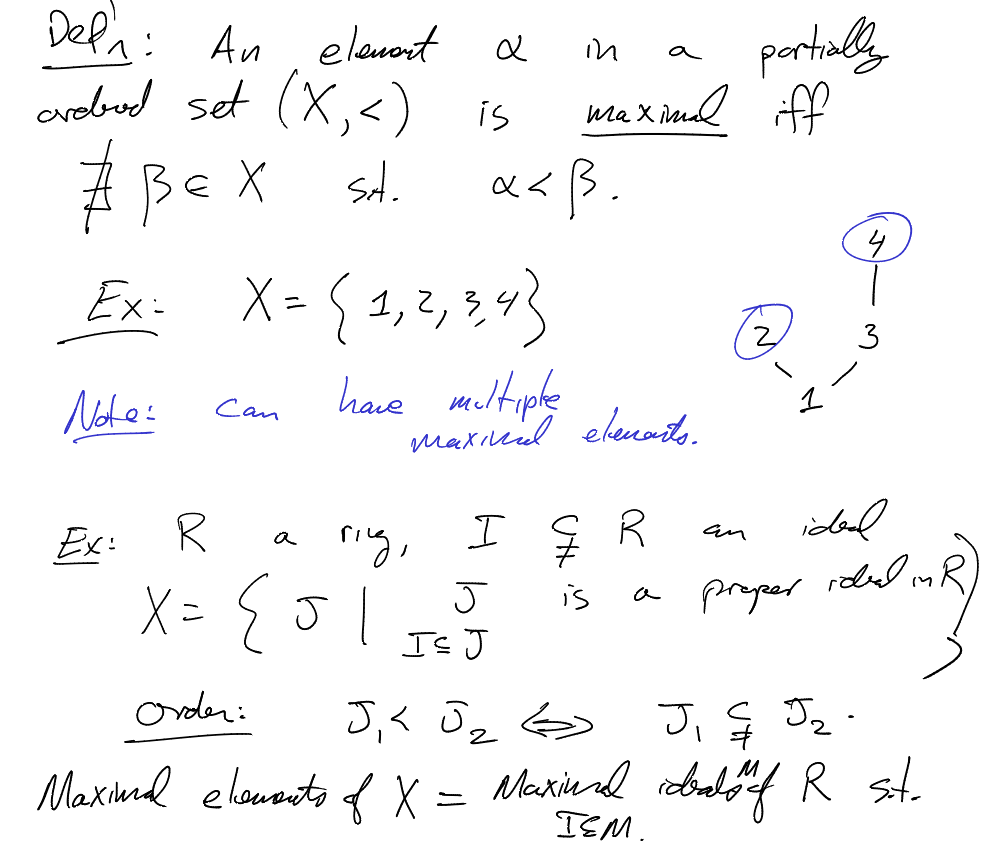 Def'n: An element α in a partially
ordered set (X, <) is maximal iff
∄ β ∈ X s.t. α < β.
4
Ex: X = { 1, 2, 3, 4 }
2 3
1
Note: can have multiple
maximal elements.
Ex: R a ring, I ⊊ R an ideal
X = { J | J is a proper ideal in R }
I ⊆ J
Order: J₁ < J₂ ⟺ J₁ ⊊ J₂.
Maximal elements of X = Maximal ideals M of R s.t.
I ⊆ M.